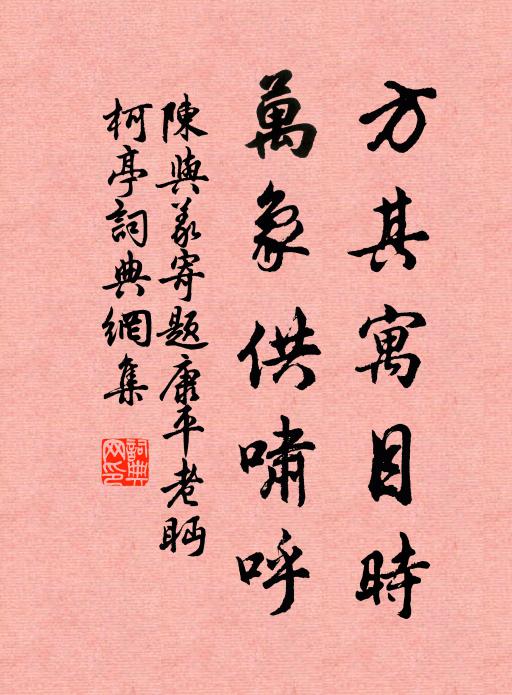 方其寓目時
萬象供嘯呼
陳與義寄題康平老眄
柯亭詞典網集
詞典
网印